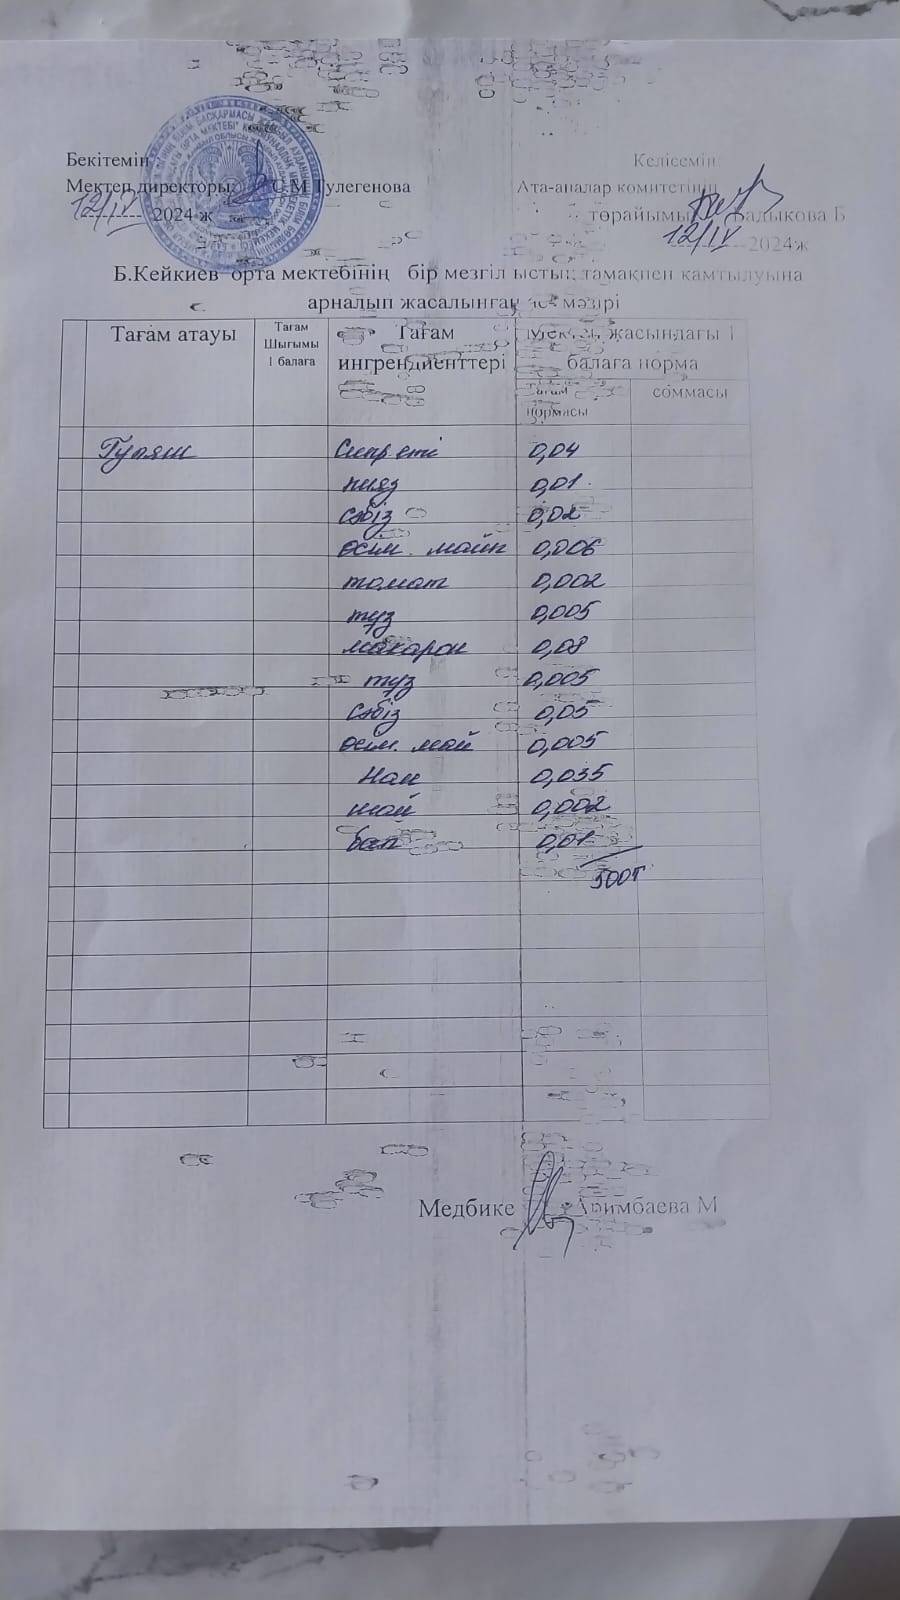 Бекітемін
Келісемін
Мектеп директоры: С.М Тулегенова
Ата-аналар комитетінің
12/IV 2024 ж
төрайымы
12/IV 2024ж
Б.Кейкиев орта мектебінің бір мезгіл ыстық тамақпен камтылуына
арналып жасалынған мәзірі
Тағам атауы
Тағам
Шығымы
1 балаға
Тағам
ингрендиенттері
Мектеп жасындағы 1
балаға норма
Тағам
нормасы
соммасы
Гуляш Сиыр еті 0,04
пияз 0,01
сәбіз 0,02
өсім. майы 0,006
томат 0,002
тұз 0,005
макарон 0,08
тұз 0,005
сәбіз 0,05
өсім. май 0,005
Нан 0,035
шай 0,002
0,01
500т
Медбике